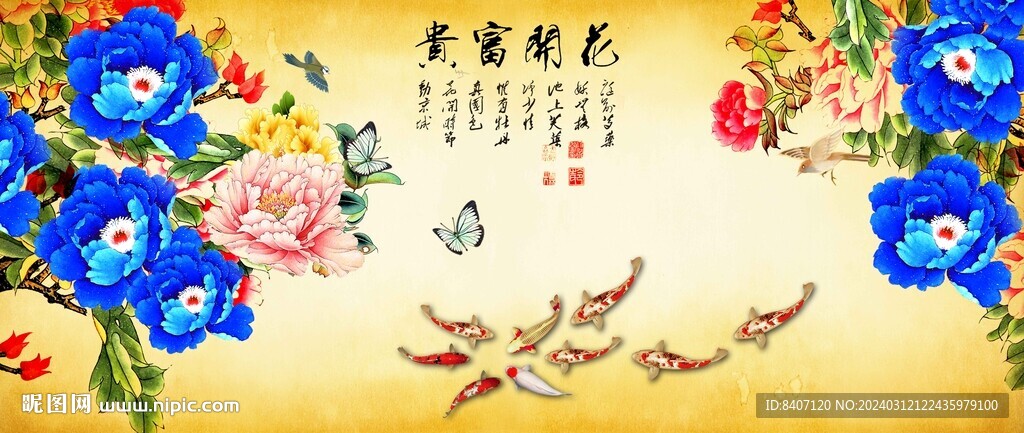 花開富貴
庭前芍藥
妖無格
池上芙蕖
净少情
惟有牡丹
真國色
花開時節
動京城
昵图网 www.nipic.com
ID:8407120 NO:20240312122435979100